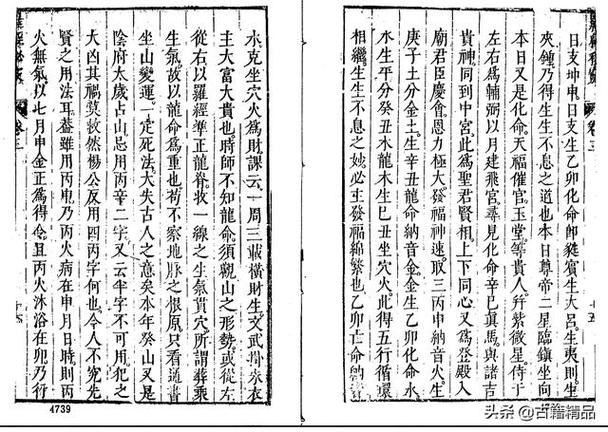 日支坤申日支生乙卯化命師蕤賓生大呂生夷則生
夾鍾乃得生生不息之道也本日尊帝二星臨鎮坐向
本日又是化命天福催官玉堂等貴人并紫微星侍于
左右為輔弼以月建飛宮尋見化命辛巳真馬與諸吉
貴神同到中宮此為聖君賢相上下同心又為登殿入
廟君臣慶會恩力極大發福神速取三丙申納音火生
庚子土分金土生辛丑龍命納音金金生乙卯化命水
水生平分癸丑木龍木生巳丑坐穴火此得五行循環
相繼生生不息之妙必主發福綿繁也乙卯亡命納音
水克坐穴火為財課云一周三載橫財生文武掛朱衣
主大富大貴也時師不知龍命須觀山之形勢或從左
從右以羅經準正龍脊收一線之生氣貫穴所謂葬乘
生氣故以龍命為重也苟不察地脉之根原只看通書
坐山變運一定死法大失古人之意矣本年癸山又是
陰府太歲占山忌用丙辛二字又云半字不可用犯之
大凶其禍莫救然楊公反用四丙字何也今人不究先
賢之用法耳葢雖用丙申乃丙火病在申月日時則丙
火無氣以七月申金正為得令且丙火沐浴在卯乃行
卷三
4739
头条@古籍精品